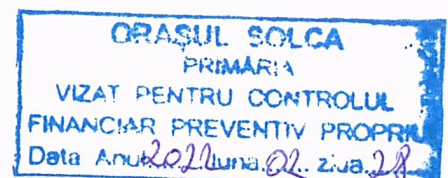 ORAȘUL SOLCA
PRIMĂRIA
VIZAT PENTRU CONTROLUL
FINANCIAR PREVENTIV PROPRIU
Data Anul 2022 luna 02 ziua 28